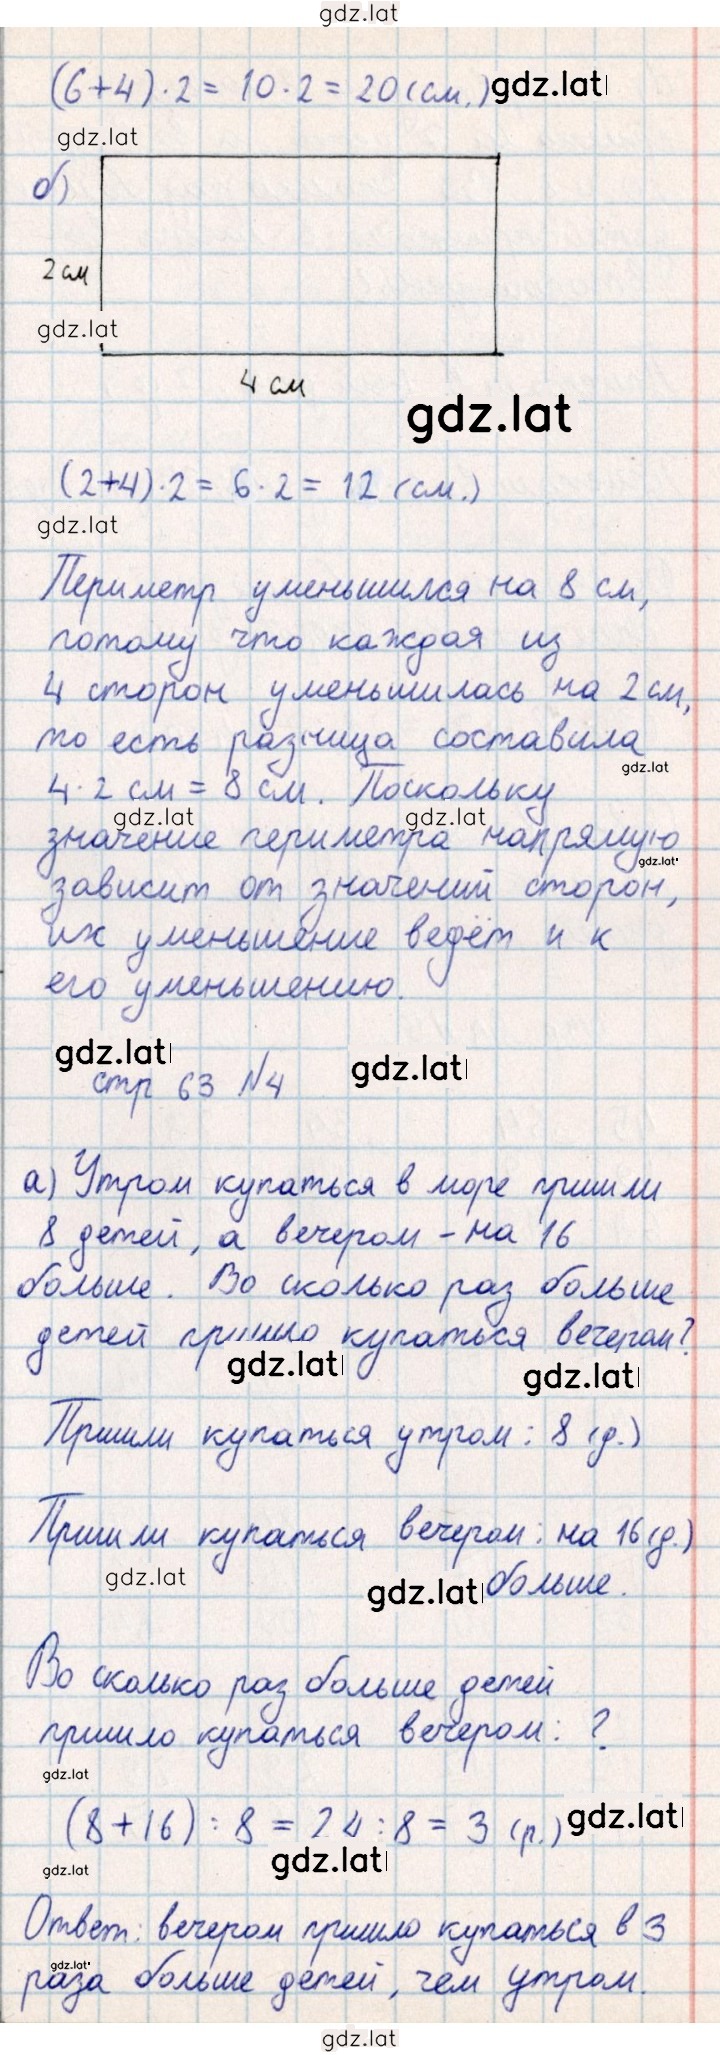 gdz.lat
(6+4)·2 = 10·2 = 20 (см.) gdz.lat
gdz.lat
б)
2 см
gdz.lat
4 см
gdz.lat
(2+4)·2 = 6·2 = 12 (см.)
gdz.lat
Периметр уменьшился на 8 см,
потому что каждая из
4 сторон уменьшилась на 2 см,
то есть разница составила
gdz.lat
4·2 см = 8 см. Поскольку
gdz.lat gdz.lat
значение периметра напрямую
gdz.lat
зависит от значений сторон,
их уменьшение ведёт и к
его уменьшению.
gdz.lat gdz.lat
стр 63 №4
а) Утром купаться в море пришли
8 детей, а вечером – на 16
больше. Во сколько раз больше
детей пришло купаться вечером?
gdz.lat gdz.lat
Пришли купаться утром: 8 (д.)
Пришли купаться вечером: на 16 (д.)
gdz.lat gdz.lat больше.
Во сколько раз больше детей
пришло купаться вечером: ?
gdz.lat
(8+16) : 8 = 24 : 8 = 3 (р.) gdz.lat
gdz.lat gdz.lat
Ответ: вечером пришло купаться в 3
gdz.lat
раза больше детей, чем утром.
gdz.lat